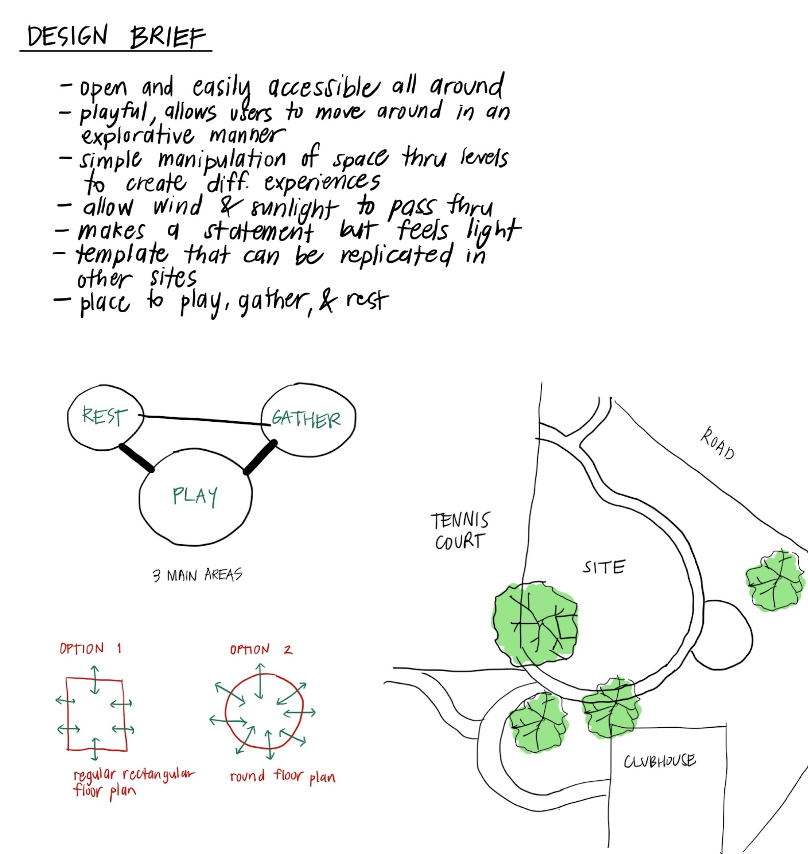 DESIGN BRIEF
- open and easily accessible all around
- playful, allows users to move around in an
explorative manner
- simple manipulation of space thru levels
to create diff. experiences
- allow wind & sunlight to pass thru
- makes a statement but feels light
- template that can be replicated in
other sites
- place to play, gather, & rest
REST
GATHER
PLAY
3 MAIN AREAS
ROAD
TENNIS
COURT
SITE
CLUBHOUSE
OPTION 1
regular rectangular
floor plan
OPTION 2
round floor plan